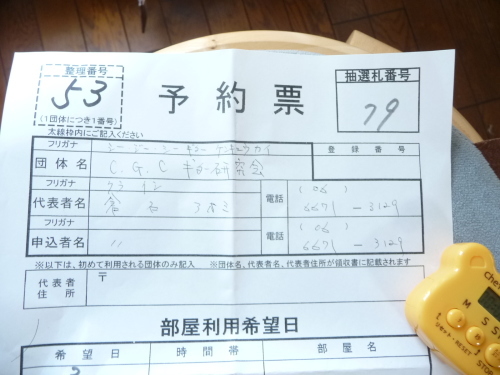 整理番号
53
(1団体につき1番号)
予約票
抽選札番号
79
太線枠内にご記入ください
フリガナ シー・ジー・シー ギター ケンキュウカイ
登録番号
団体名 C.G.C ギター研究会
フリガナ クライシ
代表者名 倉石
電話 (06) 6671-3129
フリガナ
申込者名 〃
電話 (06) 6671-3129
※以下は、初めて利用される団体のみ記入 ※団体名、代表者名、代表者住所が領収書に記載されます
代表者住所 〒
部屋利用希望日
希望日 時間帯 部屋名
M
S
リセット・RESET